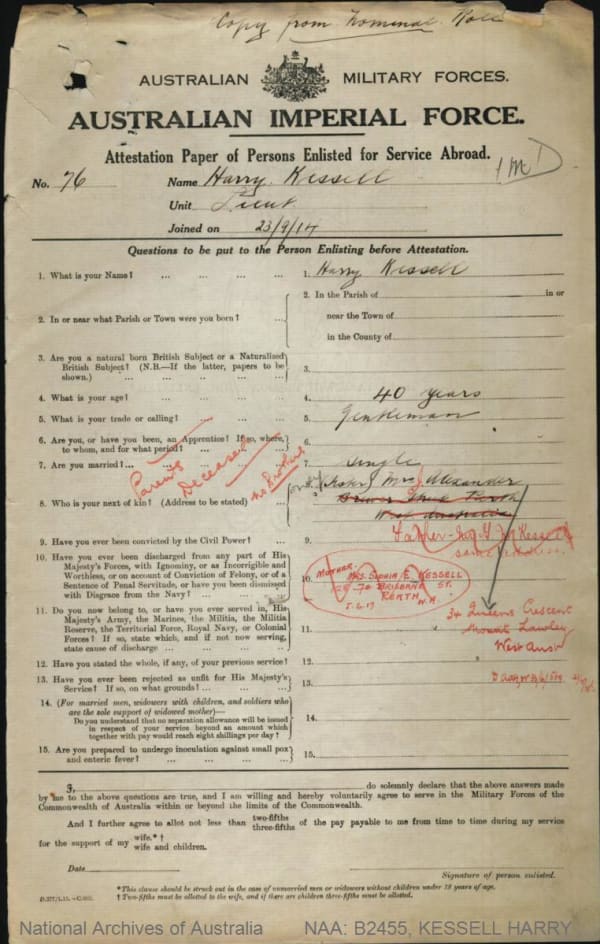 Copy from Nominal Roll
AUSTRALIAN MILITARY FORCES.
AUSTRALIAN IMPERIAL FORCE.
Attestation Paper of Persons Enlisted for Service Abroad.
No. 76 Name Harry Kessell
Unit Lieut
Joined on 23/9/14
Questions to be put to the Person Enlisting before Attestation.
1. What is your Name? ... ... ... ... 1. Harry Kessell
2. In or near what Parish or Town were you born? ... 2. In the Parish of in or
near the Town of
in the County of
3. Are you a natural born British Subject or a Naturalized
British Subject? (N.B.—If the latter, papers to be
shown.) ... ... ... ... ... 3.
4. What is your age? ... ... ... ... 4. 40 years
5. What is your trade or calling? ... ... ... 5. Gentleman
6. Are you, or have you been, an Apprentice? If so, where,
to whom, and for what period? ... ... 6.
7. Are you married? ... ... ... ... 7. Single
Parents Deceased
no Brothers
8. Who is your next of kin? (Address to be stated) ... (Sister) Mrs J. Alexander
Perth
West Australia
9. Have you ever been convicted by the Civil Power? ... 9.
Father - Kessell
10. Have you ever been discharged from any part of His
Majesty's Forces, with Ignominy, or as Incorrigible and
Worthless, or on account of Conviction of Felony, or of a
Sentence of Penal Servitude, or have you been dismissed
with Disgrace from the Navy? ... ... 10.
MOTHER.
MRS. SOPHIA E. KESSELL
70 BRISBANE ST.
PERTH W.A.
5.6.17
34 Queens Crescent
Mount Lawley
West Aust
11. Do you now belong to, or have you ever served in, His
Majesty's Army, the Marines, the Militia, the Militia
Reserve, the Territorial Force, Royal Navy, or Colonial
Forces? If so, state which, and if not now serving,
state cause of discharge ... ... ... 11.
12. Have you stated the whole, if any, of your previous service? 12.
13. Have you ever been rejected as unfit for His Majesty's
Service? If so, on what grounds? ... ... 13.
14. (For married men, widowers with children, and soldiers who
are the sole support of widowed mother)—
Do you understand that no separation allowance will be issued
in respect of your service beyond an amount which
together with pay would reach eight shillings per day? 14.
15. Are you prepared to undergo inoculation against small pox
and enteric fever? ... ... ... ... 15.
3, do solemnly declare that the above answers made
by me to the above questions are true, and I am willing and hereby voluntarily agree to serve in the Military Forces of the
Commonwealth of Australia within or beyond the limits of the Commonwealth.
And I further agree to allot not less than two-fifths three-fifths of the pay payable to me from time to time during my service
for the support of my wife.* † wife and children.
Date
Signature of person enlisted.
*This clause should be struck out in the case of unmarried men or widowers without children under 18 years of age.
† Two-fifths must be allotted to the wife, and if there are children three-fifths must be allotted.
National Archives of Australia NAA: B2455, KESSELL HARRY